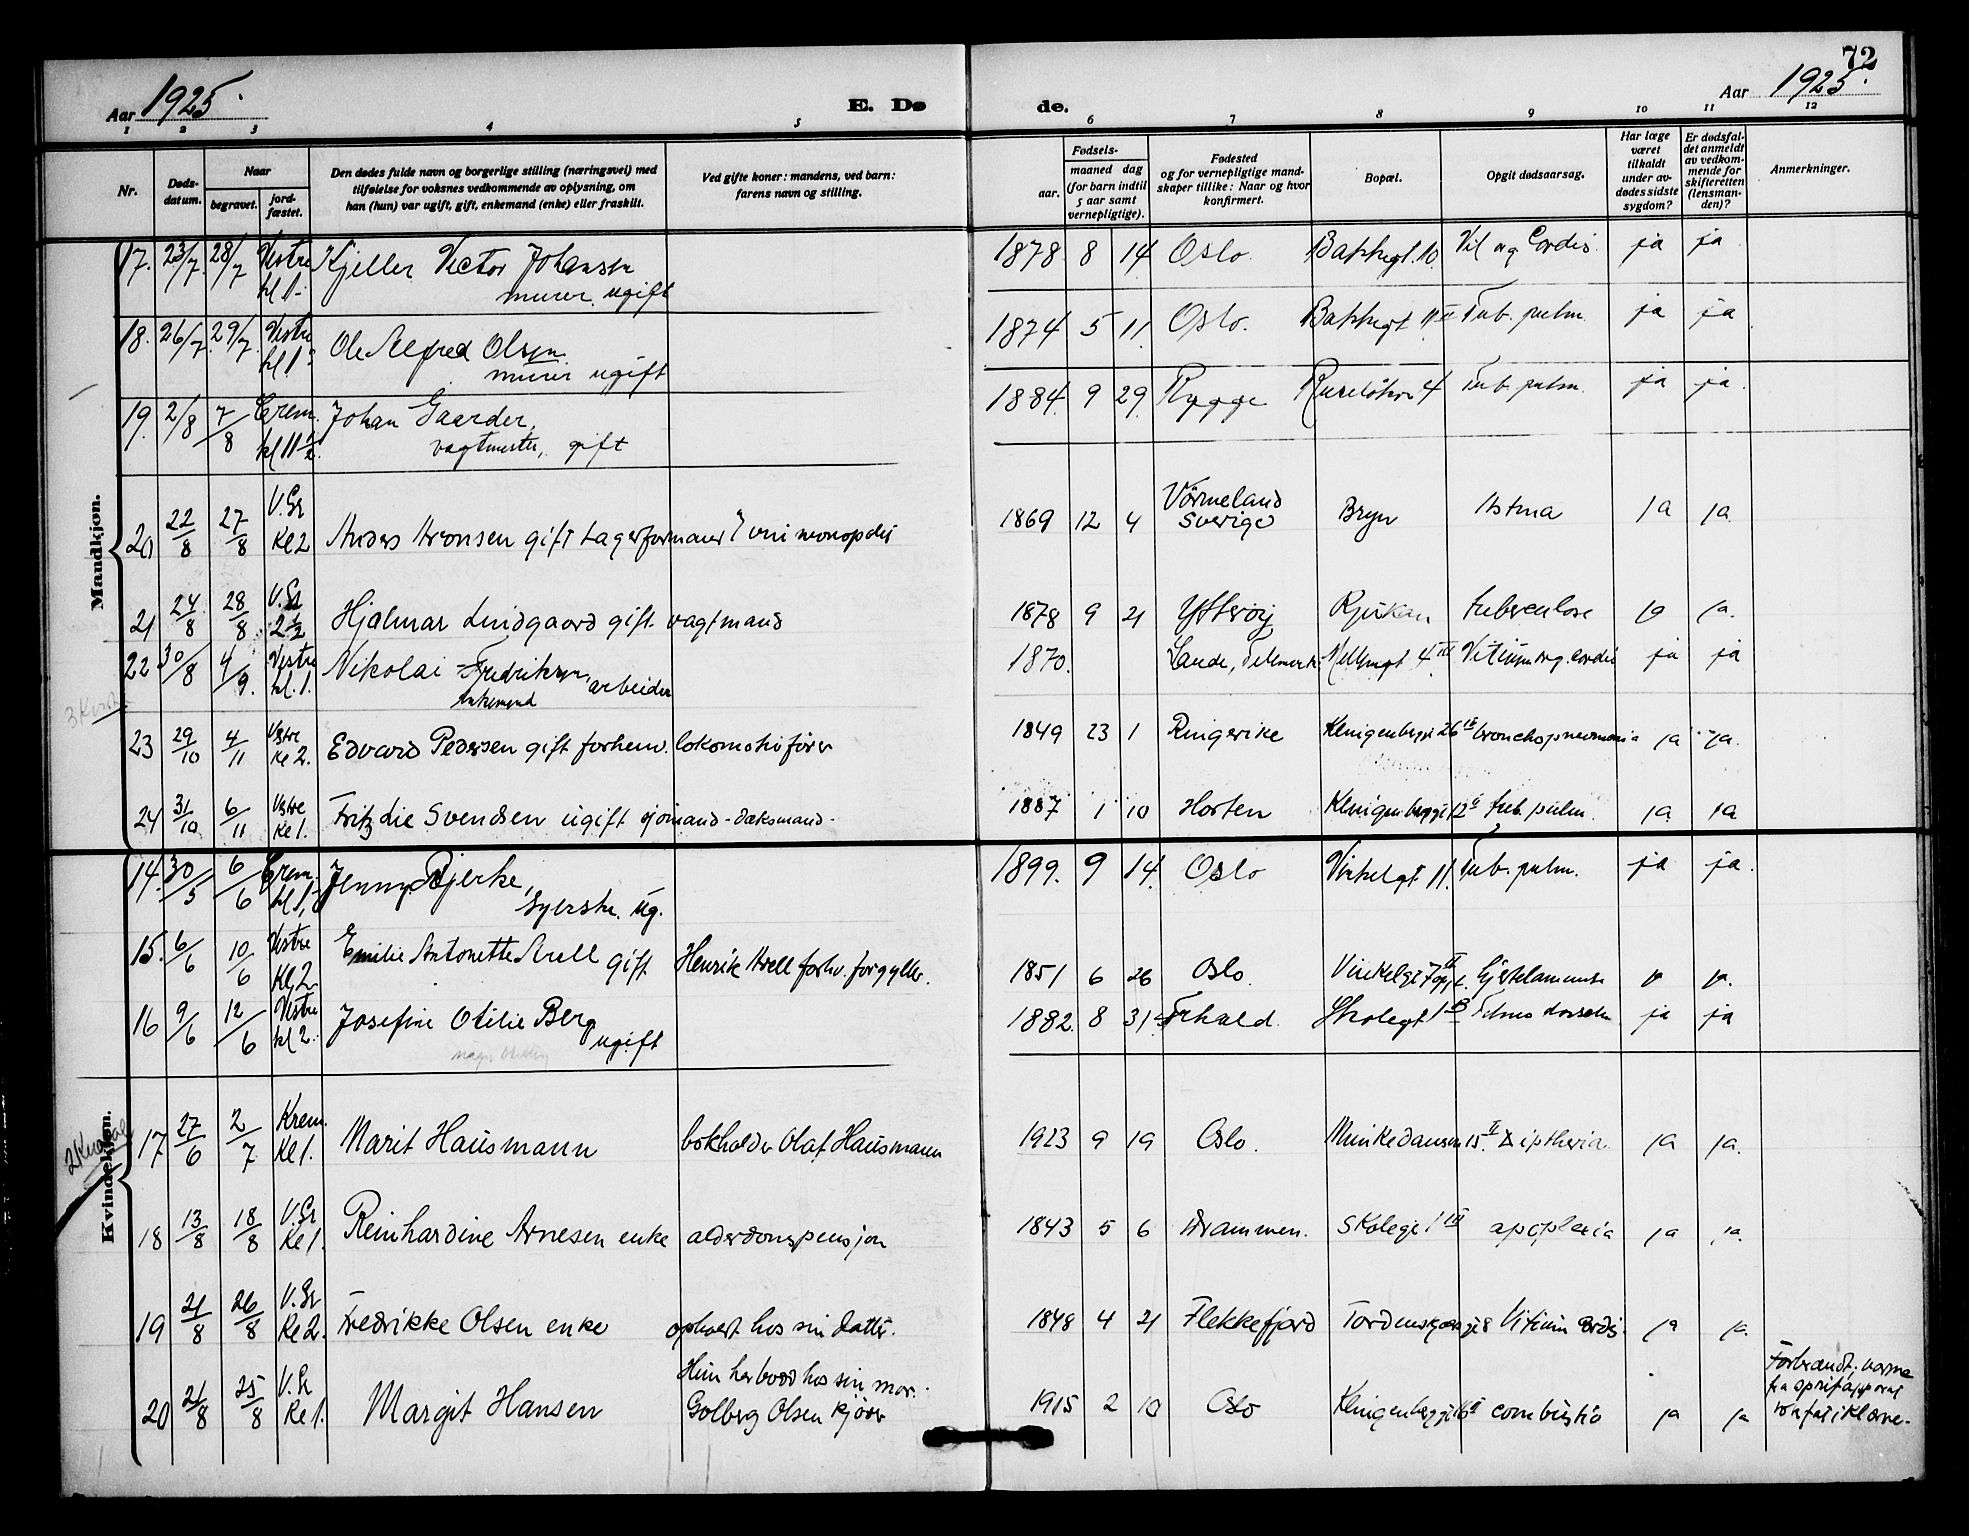 72
Aar 1925. E. Dø de. Aar 1925.
1 2 3 4 5 6 7 8 9 10 11 12
Nr. Døds-datum. Naar begravet. jord-fæstet. Den dødes fulde navn og borgerlige stilling (næringsvei) med tilføielse for voksnes vedkommende av oplysning, om han (hun) var ugift, gift, enkemand (enke) eller fraskilt. Ved gifte koner: mandens, ved barn: farens navn og stilling. Fødsels- aar. maaned dag (for barn indtil 5 aar samt vernepligtige). Fødested og for vernepligtige mand-skaper tillike: Naar og hvor konfirmert. Bopæl. Opgit dødsaarsag. Har læge været tilkaldt under av-dødes sidste sygdom? Er dødsfal-det anmeldt av vedkom-mende for skifteretten (lensman-den)? Anmerkninger.
Mandkjøn.
17. 23/7 28/7 Vestre kl 1 Kjeller Victor Johansen murer. ugift 1878 8 14 Oslo. Bakkegt. 10. Vit org Cordis. ja ja
18. 26/7 29/7 Vestre kl 1 Ole Alfred Olsen murer ugift 1874 5 11. Oslo. Bakkegt 11 Tub. pulm. ja ja
19. 2/8 7/8 Crem. kl 11 1/2 Johan Gaarder, vagtmester, gift 1884. 9 29. Rygge 4 Tub. pulm. ja ja.
20 22/8 27/8 V. Gr Kl 2 Anders Aronsen gift Lagerformann i vinmonopolet 1869 12 4 Vörmeland Sverige Bryn Astma ja ja.
21 24/8 28/8 V. Gr 2 1/2 Hjalmar Lindgaard gift vagtmand 1878 9 21 Ytterøy Rjukan tuberculose ja ja.
22 30/8 4/9. Vestre kl. 1. Nikolai Fredriksen, arbeider enkemand 1870. Lande, Telemark. 4 III Vitium org. cordis ja ja
23 29/10 4/11 Vstre Kl 2. Edvard Pedersen gift forhenv. lokomotivfører 1849 23 1 Ringerike Klingenberggt 26 bronchopneumonia ja ja.
24 31/10 6/11 Vstre Kl 1. Fritz Lie Svendsen ugift sjømand-dæksmand- 1887 1 10 Horten Klingenberggt 12 tub. pulm. ja ja
Kvindekjøn.
14. 30/5 6/6 Crem. kl 1, Jenny Bjerke, Syerske. ug. 1899. 9 14. Oslo Vinkelgt 11. Tub. pulm. ja ja.
15. 6/6 10/6 Vestre Kl 2 Emilie Antonette Arell gift Henrik Arell forhv. forgylder. 1851 6 26 Oslo. Vinkelgt 7 Hjertelammelse ja ja.
16 9/6 12/6 Vestre kl 2. Josefine Otilie Berg ugift 1882. 8 31. Skolegt 1 Tabes dorsalis ja ja
17 27/6 2/7 Krem. Kl 1. Marit Hausmann bokholder Olaf Hausmann 1923 9 19 Oslo. Munkedamsv 15 II Diptheria ja ja.
18 13/8 18/8 V. Gr Kl 1. Reinhardine Arnesen enke alderdomspensjon 1843 5 6 Drammen. Skolegt 1 III apoplexia ja ja.
19 21/8 26/8 V. Gr Kl 2. Fredrikke Olsen enke ophert hos sin datter. 1848 4 21 Flekkefjord Tordenskjoldsgt 8 Vitium cordis. ja ja.
20 21/8 25/8 V. Gr Kl 1. Margit Hansen Hun har bodd hos sin mor. Golberg Olsen kjører 1915 2 10 Oslo Klingenberggt 16 combustio ja ja Forbrændt; varme fra spritapparat tok fat i klærne.